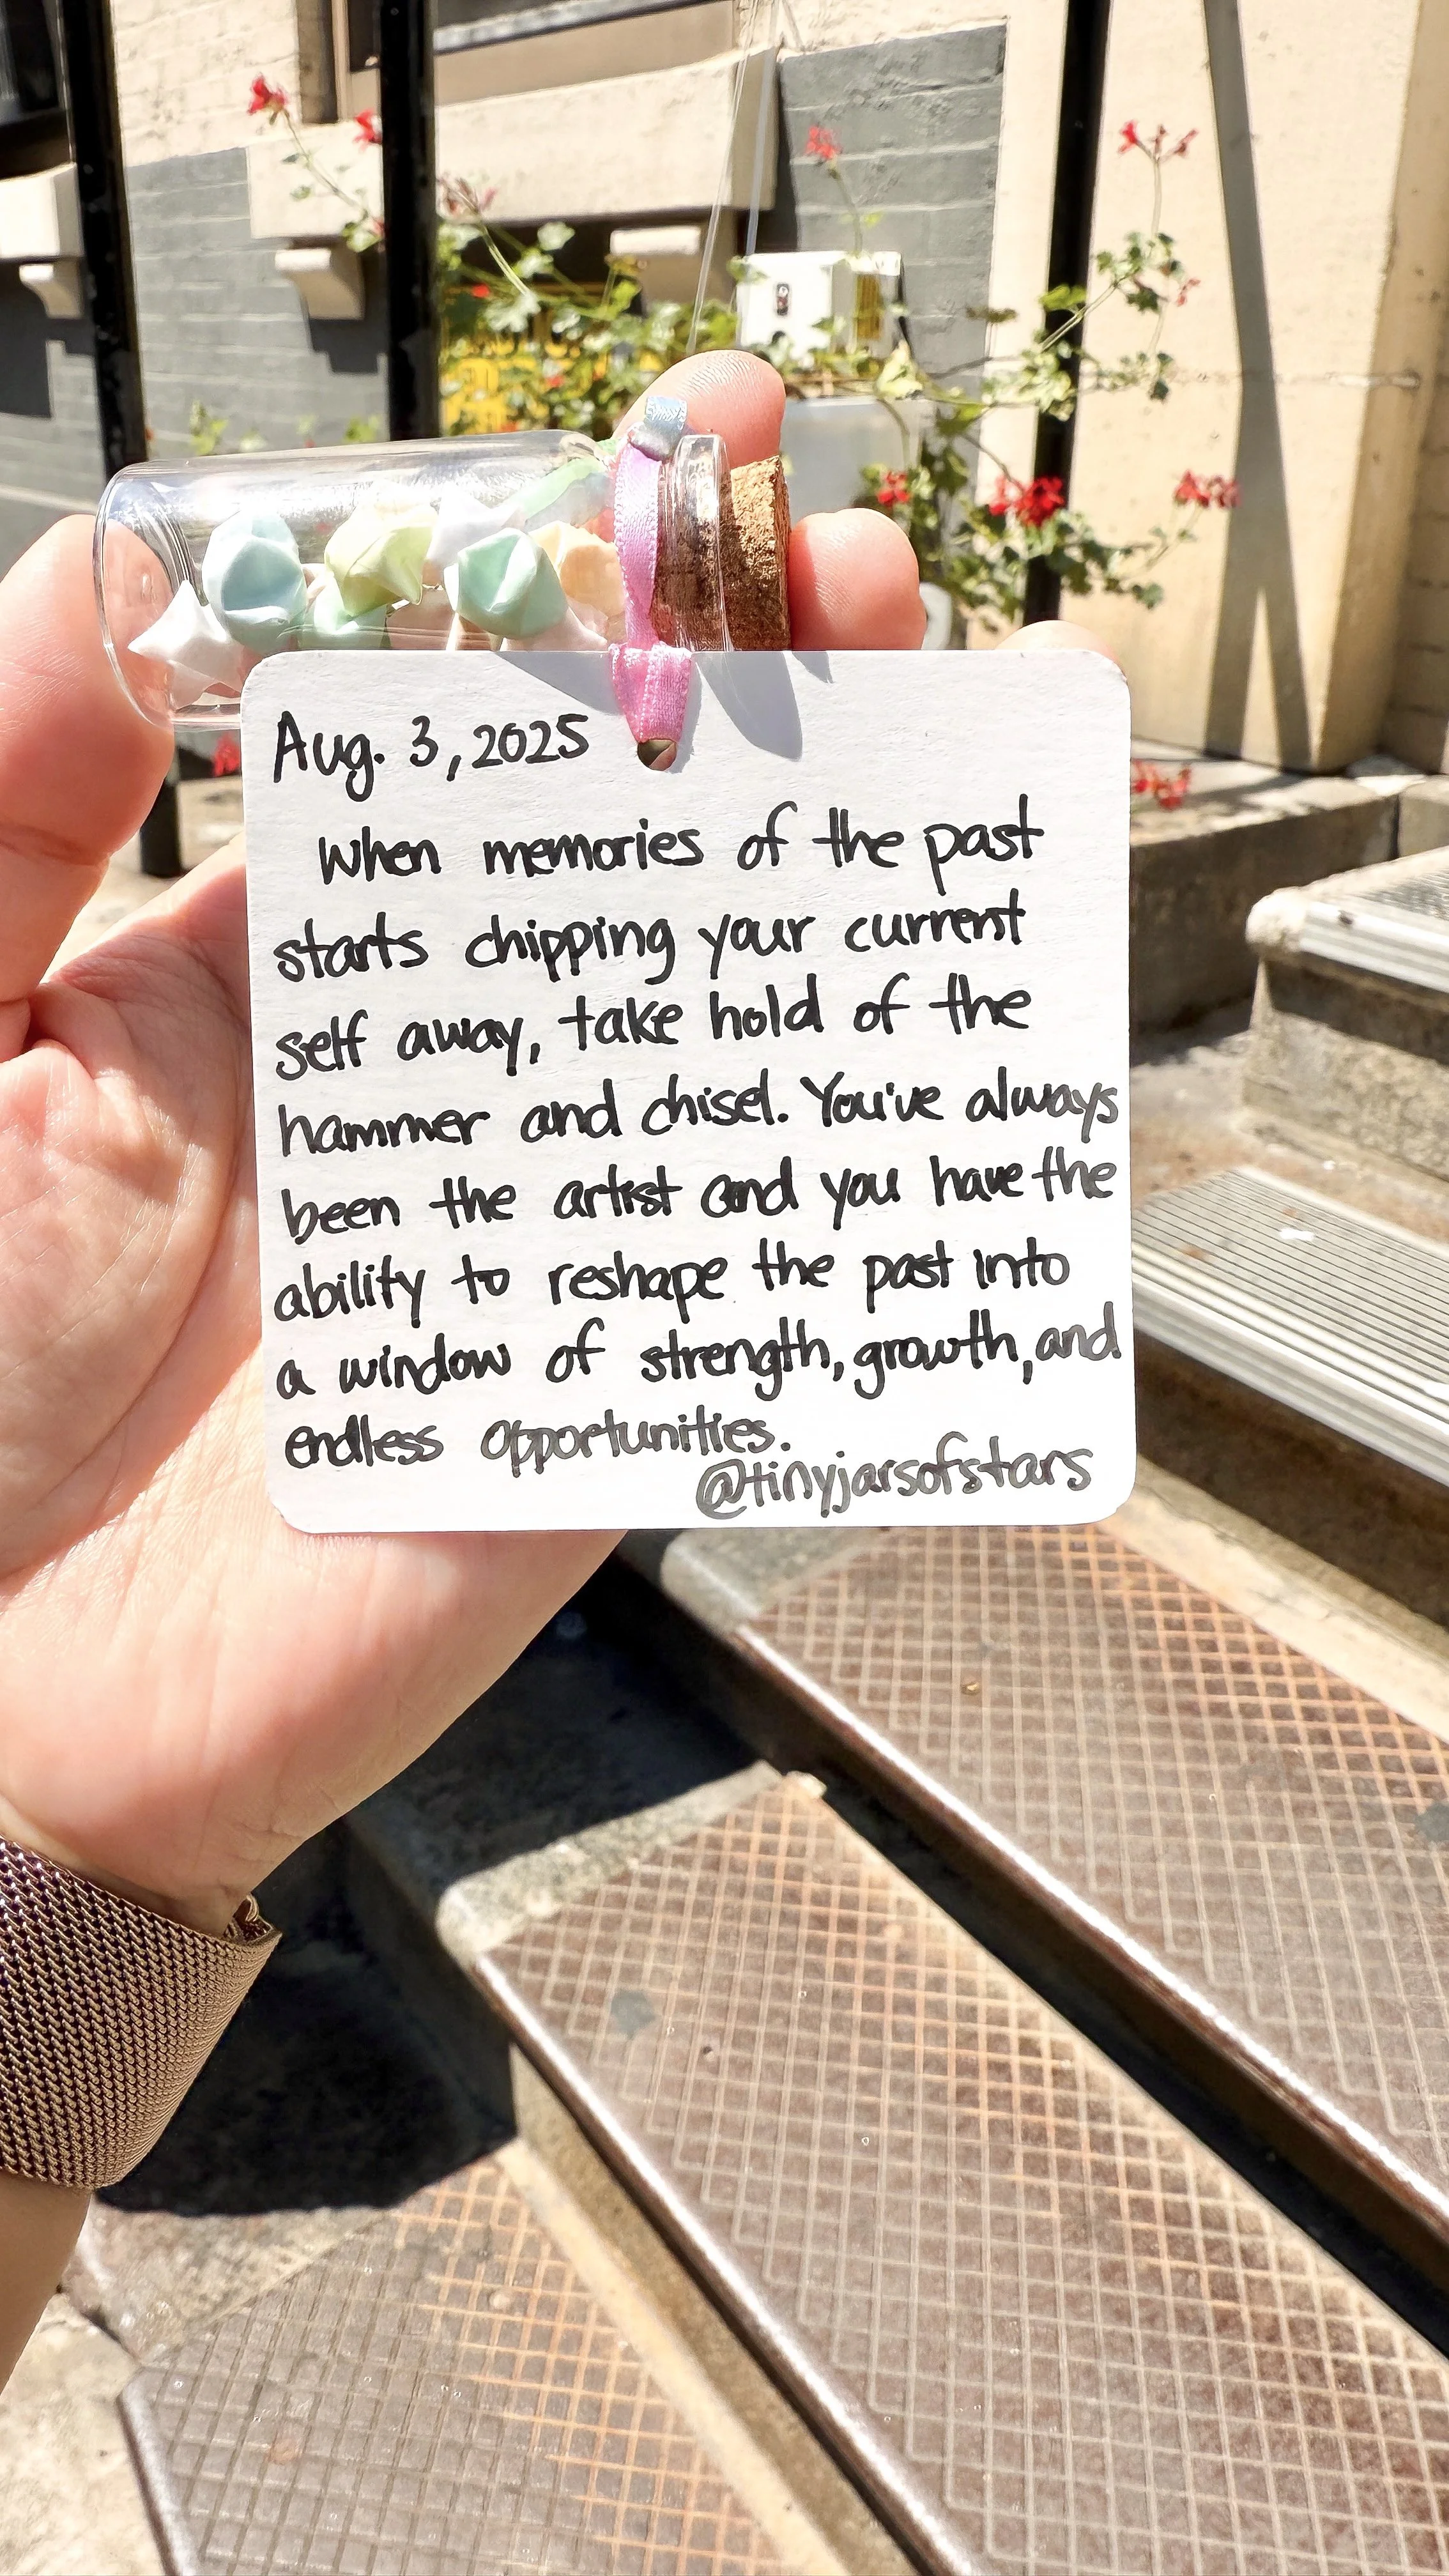 Aug. 3, 2025
When memories of the past
starts chipping your current
self away, take hold of the
hammer and chisel. You've always
been the artist and you have the
ability to reshape the past into
a window of strength, growth, and
endless opportunities.
@tinyjarsofstars